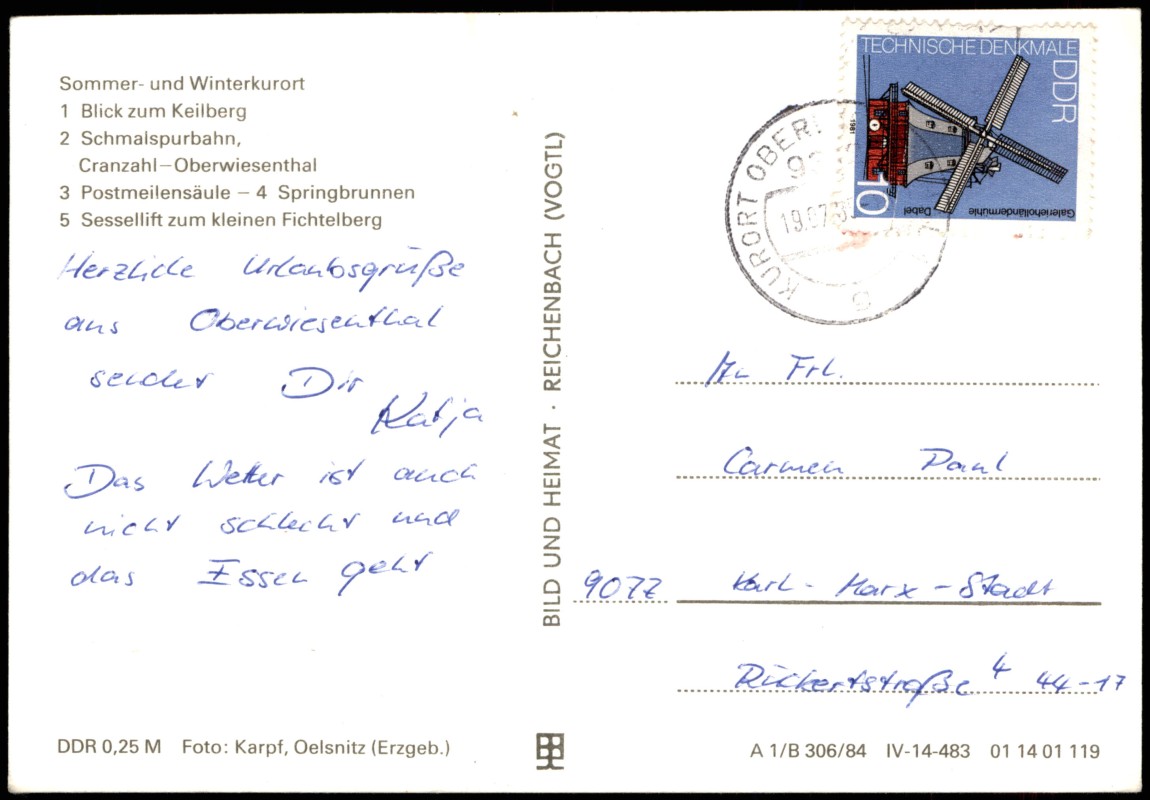 Sommer- und Winterkurort
1 Blick zum Keilberg
2 Schmalspurbahn,
Cranzahl–Oberwiesenthal
3 Postmeilensäule – 4 Springbrunnen
5 Sessellift zum kleinen Fichtelberg
Herzliche Urlaubsgrüße
aus Oberwiesenthal
sendet Dir
Katja
Das Wetter ist auch
nicht schlecht und
das Essen geht
DDR 0,25 M Foto: Karpf, Oelsnitz (Erzgeb.)
BILD UND HEIMAT · REICHENBACH (VOGTL)
TECHNISCHE DENKMALE
DDR
1981
10
Galerieholländermühle
Dabel
KURORT OBER
19.07.
An Frl.
Carmen Paul
9077 Karl-Marx-Stadt
Rückertstraße 4 44-17
A 1/B 306/84 IV-14-483 01 14 01 119